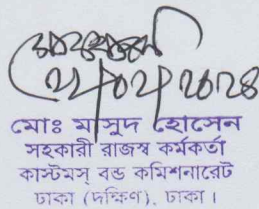 মোঃ মাসুদ হোসেন
সহকারী রাজস্ব কর্মকর্তা
কাস্টমস্ বন্ড কমিশনারেট
ঢাকা (দক্ষিণ), ঢাকা।